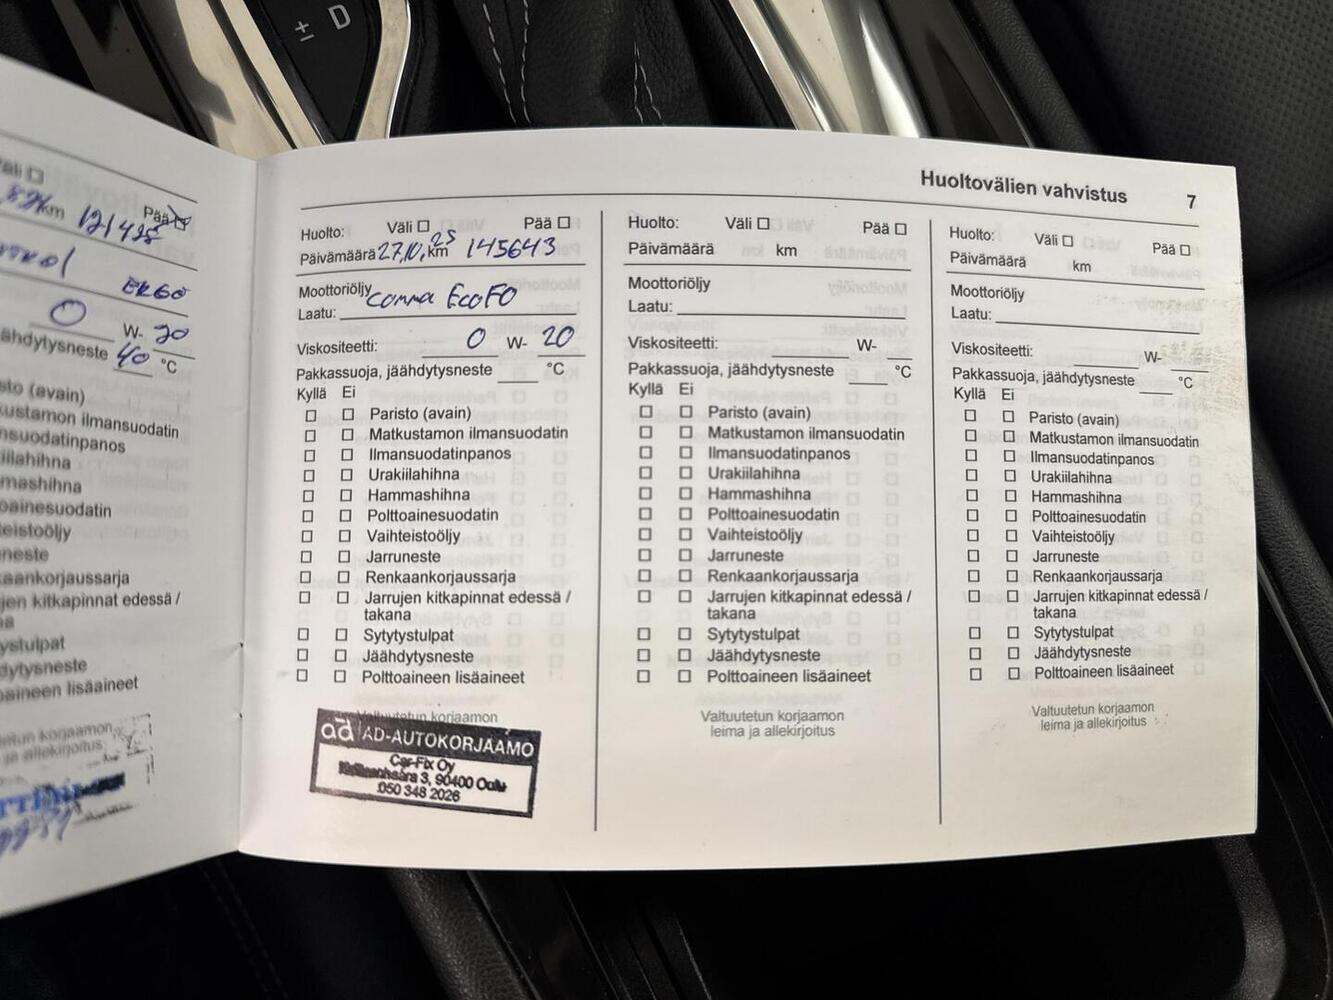 ± D
Väli ☐
km 121425 Pää ☒
0 W- 20
40 °C
Huoltovälien vahvistus 7
Huolto: Väli ☐ Pää ☐
Päivämäärä 27.10.25 km 145643
Moottoriöljy
Laatu: comma EcoFO
Viskositeetti: 0 W- 20
Pakkassuoja, jäähdytysneste ___ °C
Kyllä Ei
☐ ☐ Paristo (avain)
☐ ☐ Matkustamon ilmansuodatin
☐ ☐ Ilmansuodatinpanos
☐ ☐ Urakiilahihna
☐ ☐ Hammashihna
☐ ☐ Polttoainesuodatin
☐ ☐ Vaihteistoöljy
☐ ☐ Jarruneste
☐ ☐ Renkaankorjaussarja
☐ ☐ Jarrujen kitkapinnat edessä /
takana
☐ ☐ Sytytystulpat
☐ ☐ Jäähdytysneste
☐ ☐ Polttoaineen lisäaineet
Valtuutetun korjaamon
ad AD-AUTOKORJAAMO
Car-Fix Oy
3, 90400 Oulu
050 348 2026
Huolto: Väli ☐ Pää ☐
Päivämäärä km
Moottoriöljy
Laatu:
Viskositeetti: ___ W- ___
Pakkassuoja, jäähdytysneste ___ °C
Kyllä Ei
☐ ☐ Paristo (avain)
☐ ☐ Matkustamon ilmansuodatin
☐ ☐ Ilmansuodatinpanos
☐ ☐ Urakiilahihna
☐ ☐ Hammashihna
☐ ☐ Polttoainesuodatin
☐ ☐ Vaihteistoöljy
☐ ☐ Jarruneste
☐ ☐ Renkaankorjaussarja
☐ ☐ Jarrujen kitkapinnat edessä /
takana
☐ ☐ Sytytystulpat
☐ ☐ Jäähdytysneste
☐ ☐ Polttoaineen lisäaineet
Valtuutetun korjaamon
leima ja allekirjoitus
Huolto: Väli ☐ Pää ☐
Päivämäärä km
Moottoriöljy
Laatu:
Viskositeetti: ___ W- ___
Pakkassuoja, jäähdytysneste ___ °C
Kyllä Ei
☐ ☐ Paristo (avain)
☐ ☐ Matkustamon ilmansuodatin
☐ ☐ Ilmansuodatinpanos
☐ ☐ Urakiilahihna
☐ ☐ Hammashihna
☐ ☐ Polttoainesuodatin
☐ ☐ Vaihteistoöljy
☐ ☐ Jarruneste
☐ ☐ Renkaankorjaussarja
☐ ☐ Jarrujen kitkapinnat edessä /
takana
☐ ☐ Sytytystulpat
☐ ☐ Jäähdytysneste
☐ ☐ Polttoaineen lisäaineet
Valtuutetun korjaamon
leima ja allekirjoitus